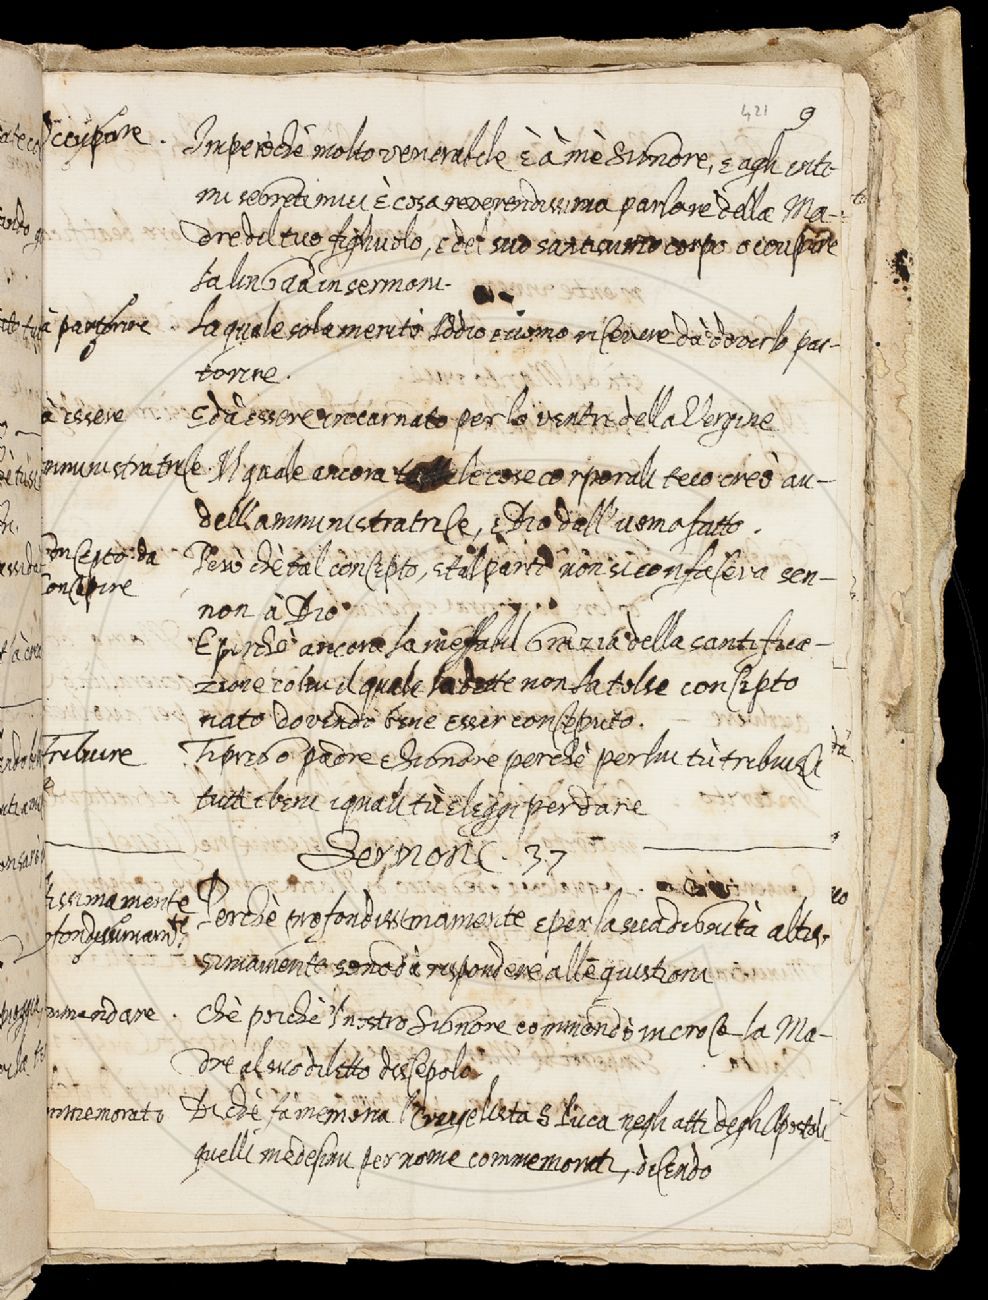 421 9
Occupare. Imperòchè molto venerabile è à mè Signore, e agli inti-
mi segreti miei è cosa reverendissima parlare della Ma-
dre del tuo figliuolo, e del suo santissimo corpo occupare
la lingua in sermoni.
à partorire La quale sola meritò Iddio e uomo ricevere da doverlo par-
torire.
à essere E da essere incarnato per lo ventre della Vergine
amministratrice. Il quale ancora le cose corporali teco creò an-
dell'amministratrice, e Dio dall'uomo fatto.
Concepto: da Però chè tal concepto, e tal parto non si confaceva sen-
Concipire
non à Dio
E perchè ancora la ineffabil Grazia della santifica-
zione colui il quale la dette non la tolse concepto
nato dovendo bene esser conceputo.
Tribuire Ti prego padre e Signore perchè per lui tù tribuisci
tutti i beni i quali tù eleggi per dare
Sermone. 37
tissimamente Perchè profondissimamente e per la sua dignità altis-
ofondissimamte
simamente sono da rispondere alle quistioni
ommandare. Chè poichè 'l nostro Signore commendò in croce la Ma-
dre al suo diletto discepolo.
ommemorato Di chè fà memoria l'Evangelista S. Luca negli atti degli Apostoli
quelli medesimi per nome commemorati, dicendo